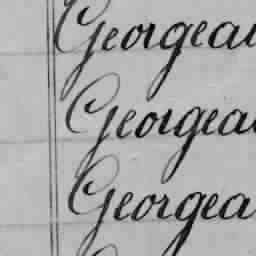 Georgeau
Georgeau
Georgea